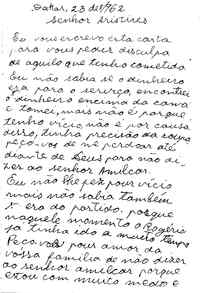 Dakar, 23 de 1962
Senhor Aristides
Eu vous escrevo esta carta
para vous pedir disculpa
de aquilo que tenho cometida
Eu não sabia se o dinheiro
era para o serviço, encontrei
o dinheiro encima da cama
e tomei, mais não é porque
tenho vício não é por causa
disso, tinha precisão da roupa
peço-vos de me perdoar até
diante de Deus para não di-
zer ao senhor Amilcar.
Eu não lhe fez pour vício
mais não sabia também
é era do partido, porque
naquele momento o Rogério
já tinha ido a muito tempo
Peço-vos pour amor da
vossa familia de não dizer
ao senhor amilcar porque
estou com muito medo e